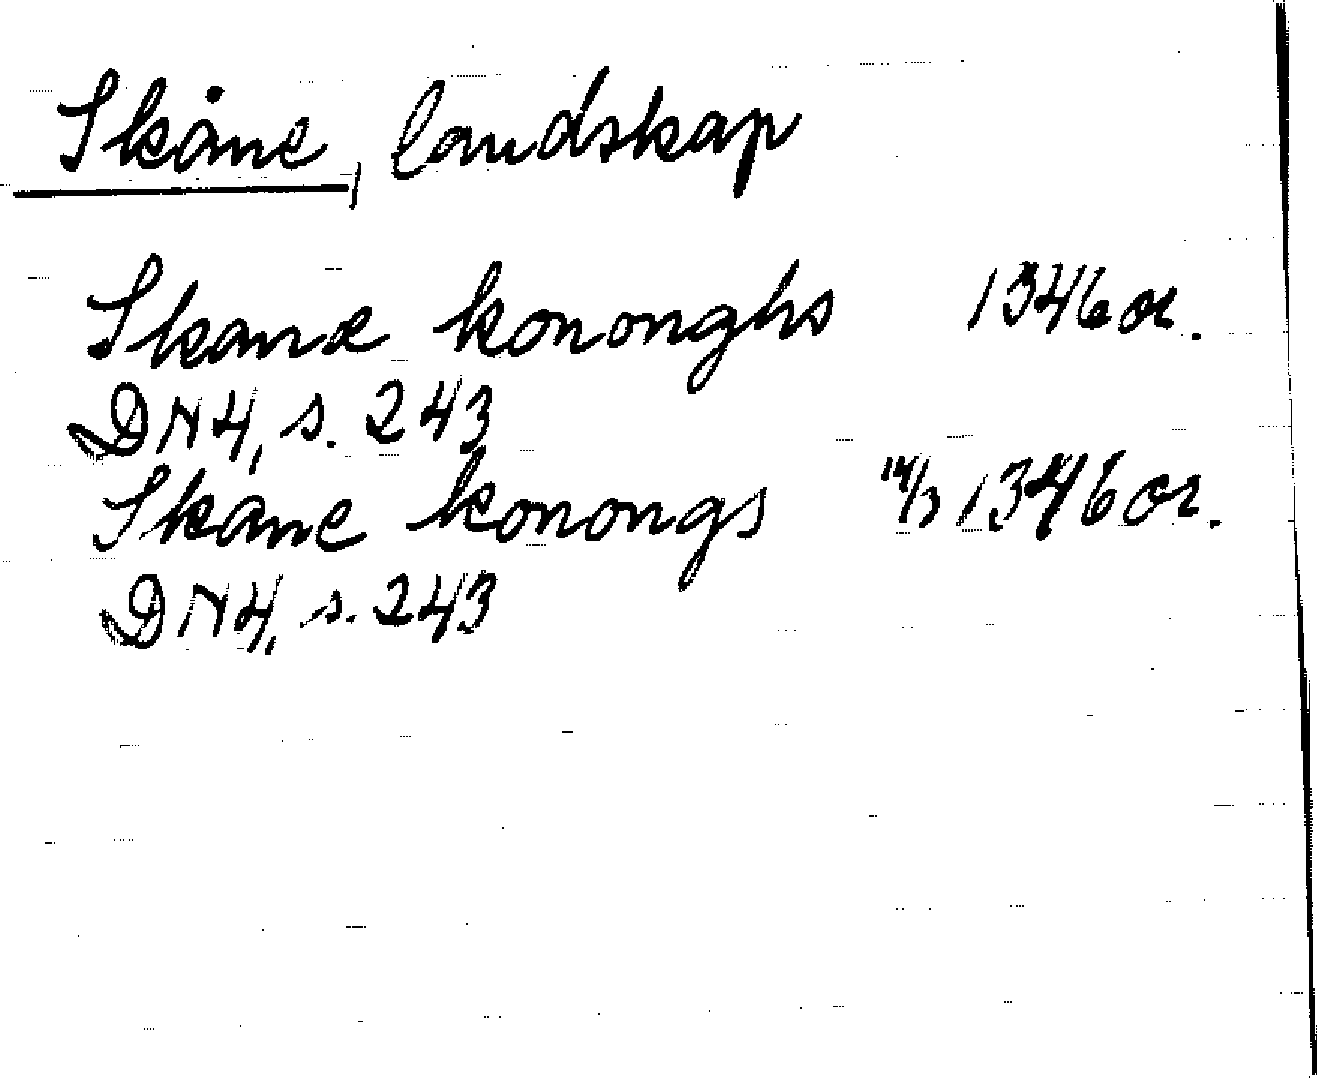 Skåne, landskap
Skanæ kononghs 1346 or.
DN 4, s. 243
Skane konongs 14/3 1346 or.
DN 4, s. 243